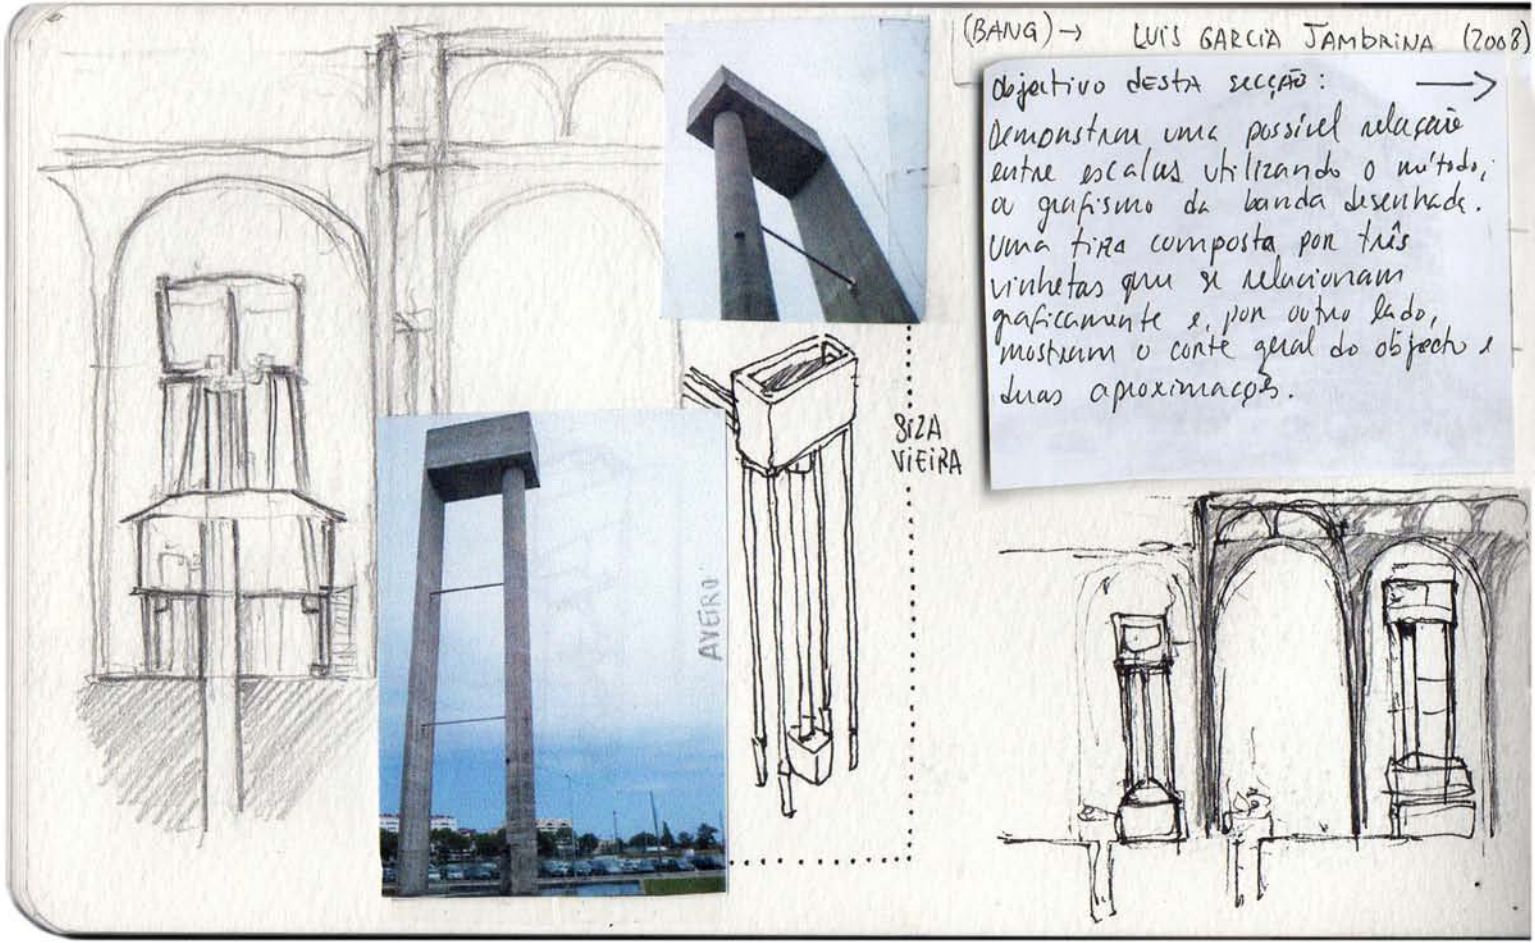 (BANG) → LUIS GARCIA JAMBRINA (2008)
Objectivo DESTA SECÇÃO: →
Demonstrar uma possível relação
entre escalas utilizando o método,
o grafismo da banda desenhada.
Uma tira composta por três
vinhetas que se relacionam
graficamente e, por outro lado,
mostram o corte geral do objecto e
duas aproximações.
SIZA
VIEIRA
AVEIRO